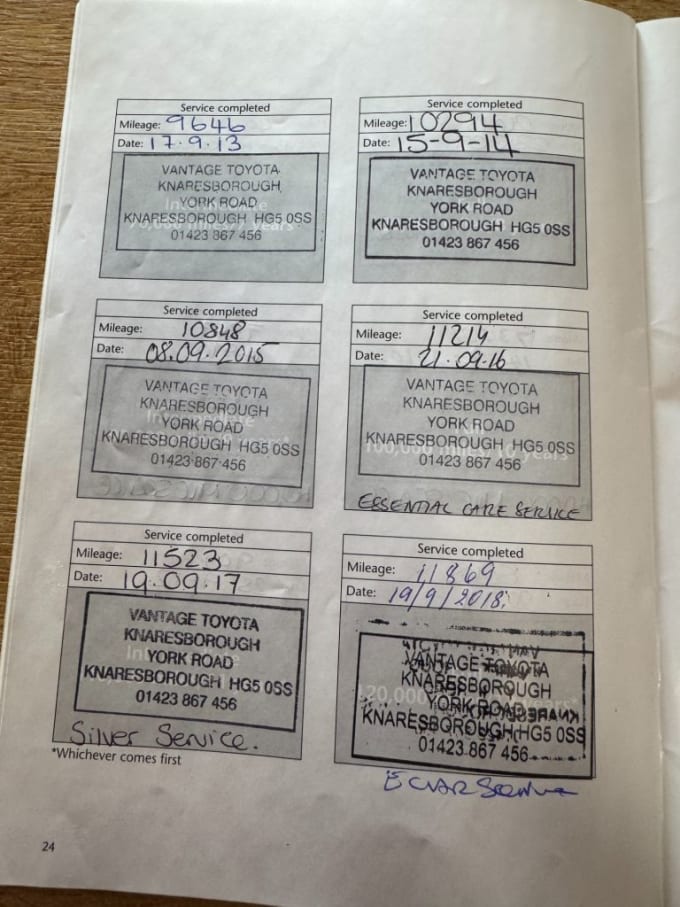 Service completed
Mileage: 9646
Date: 17.9.13
VANTAGE TOYOTA
KNARESBOROUGH
YORK ROAD
KNARESBOROUGH HG5 0SS
01423 867 456
Service completed
Mileage: 10294
Date: 15-9-14
VANTAGE TOYOTA
KNARESBOROUGH
YORK ROAD
KNARESBOROUGH HG5 0SS
01423 867 456
Service completed
Mileage: 10848
Date: 08.09.2015
VANTAGE TOYOTA
KNARESBOROUGH
YORK ROAD
KNARESBOROUGH HG5 0SS
01423 867 456
Service completed
Mileage: 11214
Date: 21.09.16
VANTAGE TOYOTA
KNARESBOROUGH
YORK ROAD
KNARESBOROUGH HG5 0SS
100,000 miles/10 years
01423 867 456
ESSENTIAL CARE SERVICE
Service completed
Mileage: 11523
Date: 19.09.17
VANTAGE TOYOTA
KNARESBOROUGH
YORK ROAD
KNARESBOROUGH HG5 0SS
01423 867 456
Silver Service.
Service completed
Mileage: 11869
Date: 19/9/2018.
VANTAGE TOYOTA
KNARESBOROUGH
YORK ROAD
KNARESBOROUGH HG5 0SS
01423 867 456
*Whichever comes first
24